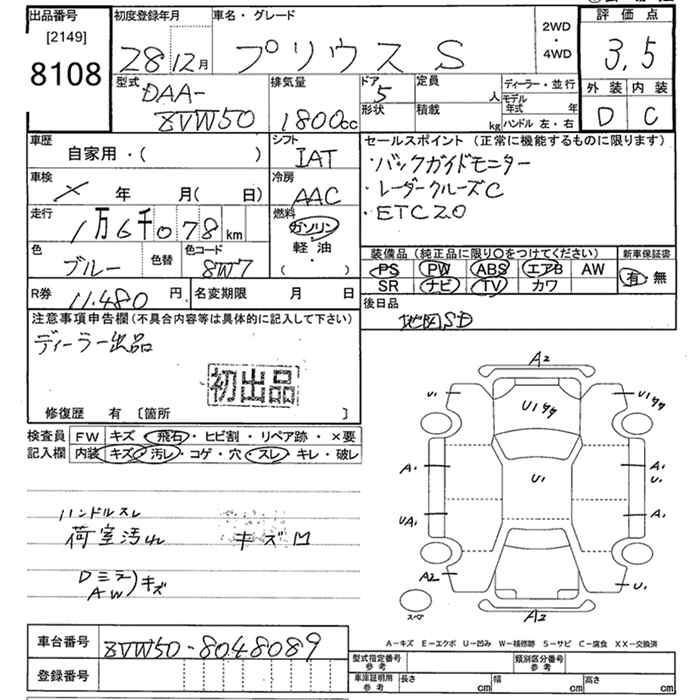 出品番号 初度登録年月 車名・グレード 評価点
[2149] 2WD
8108 28年12月 プリウス S ・4WD 3.5
型式 排気量 ドア 定員 ディーラー・並行 外装 内装
DAA- 5 人 モデル年式 年
ZVW50 1800cc 形状 積載 kg ハンドル 左・右 D C
車歴 シフト セールスポイント(正常に機能するものに限ります)
自家用・( ) IAT ・バックガイドモニター
車検 冷房 ・レーダークルーズC
× 年 月( 日) AAC ・ETC2.0
走行 燃料
1万6千078km ガソリン・
色 色替 色コード 軽油 装備品(純正品に限り○をつけてください) 新車保証書
ブルー 8W7 ・( ) PS PW ABS エアB AW 有・無
SR ナビ TV カワ
R券 11,480円 名変期限 月 日 後日品
地図SD
注意事項申告欄(不具合内容等は具体的に記入して下さい)
ディーラー出品
初出品
修復歴 有 [箇所 ]
検査員 FW キズ・飛石・ヒビ割・リペア跡・×要
記入欄 内装 キズ・汚レ・コゲ・穴・スレ・キレ・破レ
ハンドルスレ
荷室汚れ キズ凹
Dミラ)キズ
AW
A2
U1 U1ササ U1ササ
A1 U1 A1
U1
UA1 A1
A2 U1
スペア A2
A-キズ E-エクボ U-凹み W-補修跡 S-サビ C-腐食 XX-交換済
車台番号 ZVW50-8048089
登録番号
型式指定番号 参考 類別区分番号 参考
車庫証明用 参考 長さ cm 幅 cm 高さ cm